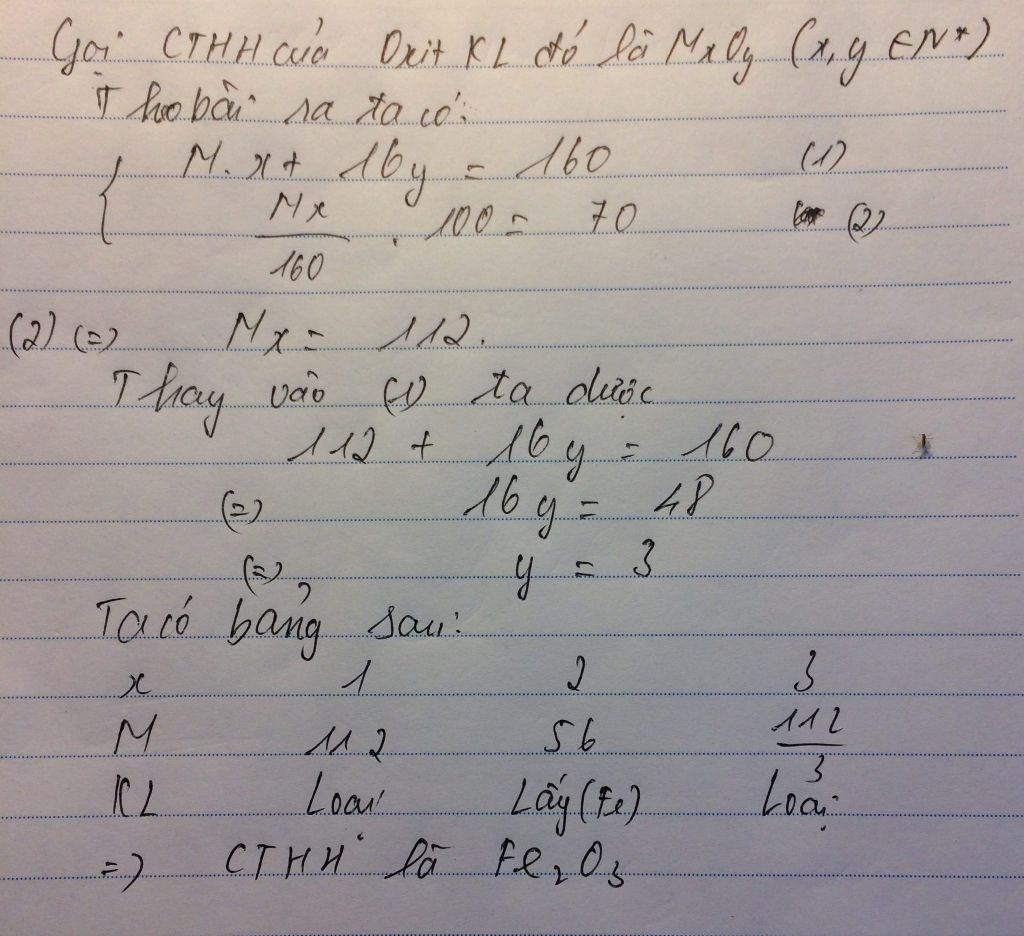 Gọi CTHH của Oxit KL đó là MxOy (x, y ∈ N*)
Theo bài ra ta có:
M.x + 16y = 160 (1)
Mx/160 . 100 = 70 (2)
(2) (=) Mx = 112.
Thay vào (1) ta được
112 + 16y = 160
(=) 16y = 48
(=) y = 3
Ta có bảng sau:
x 1 2 3
M 112 56 112/3
KL Loại Lấy (Fe) Loại
=) CTHH là Fe₂O₃